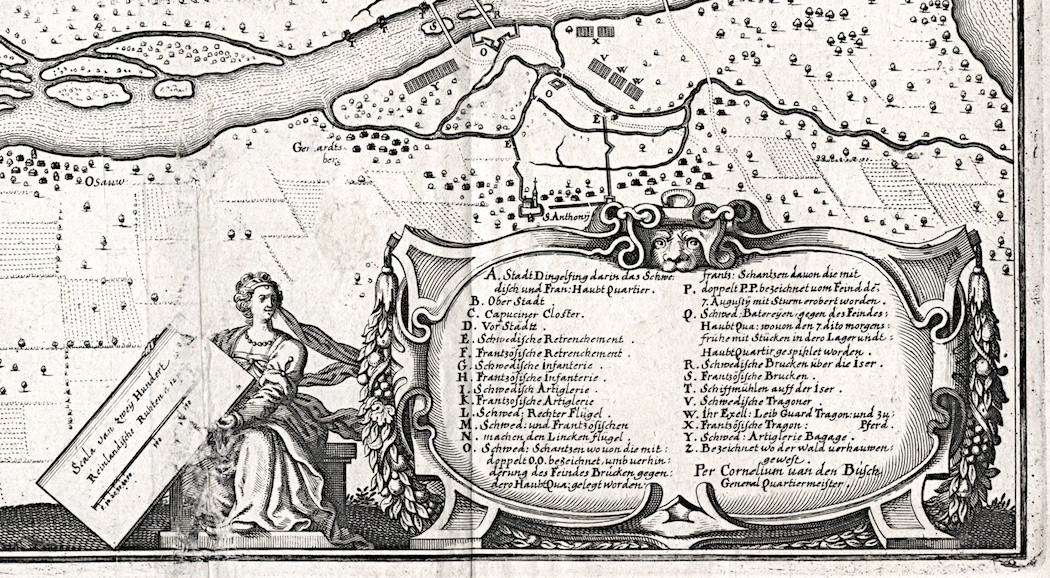 R
O
X
V
W
W
Y
O
E
E
Gerhardts
berg
Osauw
S. Anthonij
A. Stadt Dingelfing darin das Schwe-
disch und Fran: Haubt Quartier.
B. Ober Stadt
C. Capuciner Closter.
D. Vor Stadtt.
E. Schwedische Retrenchement.
F. Frantzösische Retrenchement.
G. Schwedische Infanterie.
H. Frantzösische Infanterie.
I. Schwedisch Artiglerie.
K. Frantzösische Artiglerie
L. Schwed: Rechter Flügel.
M. Schwed: und Frantzosischen
N. machen den Lincken flügel.
O. Schwed: Schantzen wo von die mit:
doppelt O.O. bezeichnet, umb verhin:
derung des Feindes Brücken gegen:
dero Haubt Qua: gelegt worden.
frantz: Schantzen davon die mit
P. doppelt P.P. bezeichnet vom Feind dē.
7. Augustÿ mit Sturm erobert worden.
Q. Schwed: Batereÿen, gegen des Feindes:
Haubt Qua: wo von den 7. dito morgens:
frühe mit Stücken in dero Lager undt:
Haubt Quartir gespihlet worden.
R. Schwedische Brucken über die Iser.
S. Frantzösische Brucken.
T. Schiffmühlen auff der Iser.
V. Schwedische Tragoner.
W. Ihr Exell: Leib Guard Tragon: und zu:
X. Frantzösische Tragon: Pferd.
Y. Schwed: Artiglerie Bagage.
Z. Bezeichnet wo der Wald verhauwen:
geweſt.
Per Cornelium van den Büsch,
General Quartiermeister.
Scala van zweÿ Hundert
Reinlandische Ruhten.